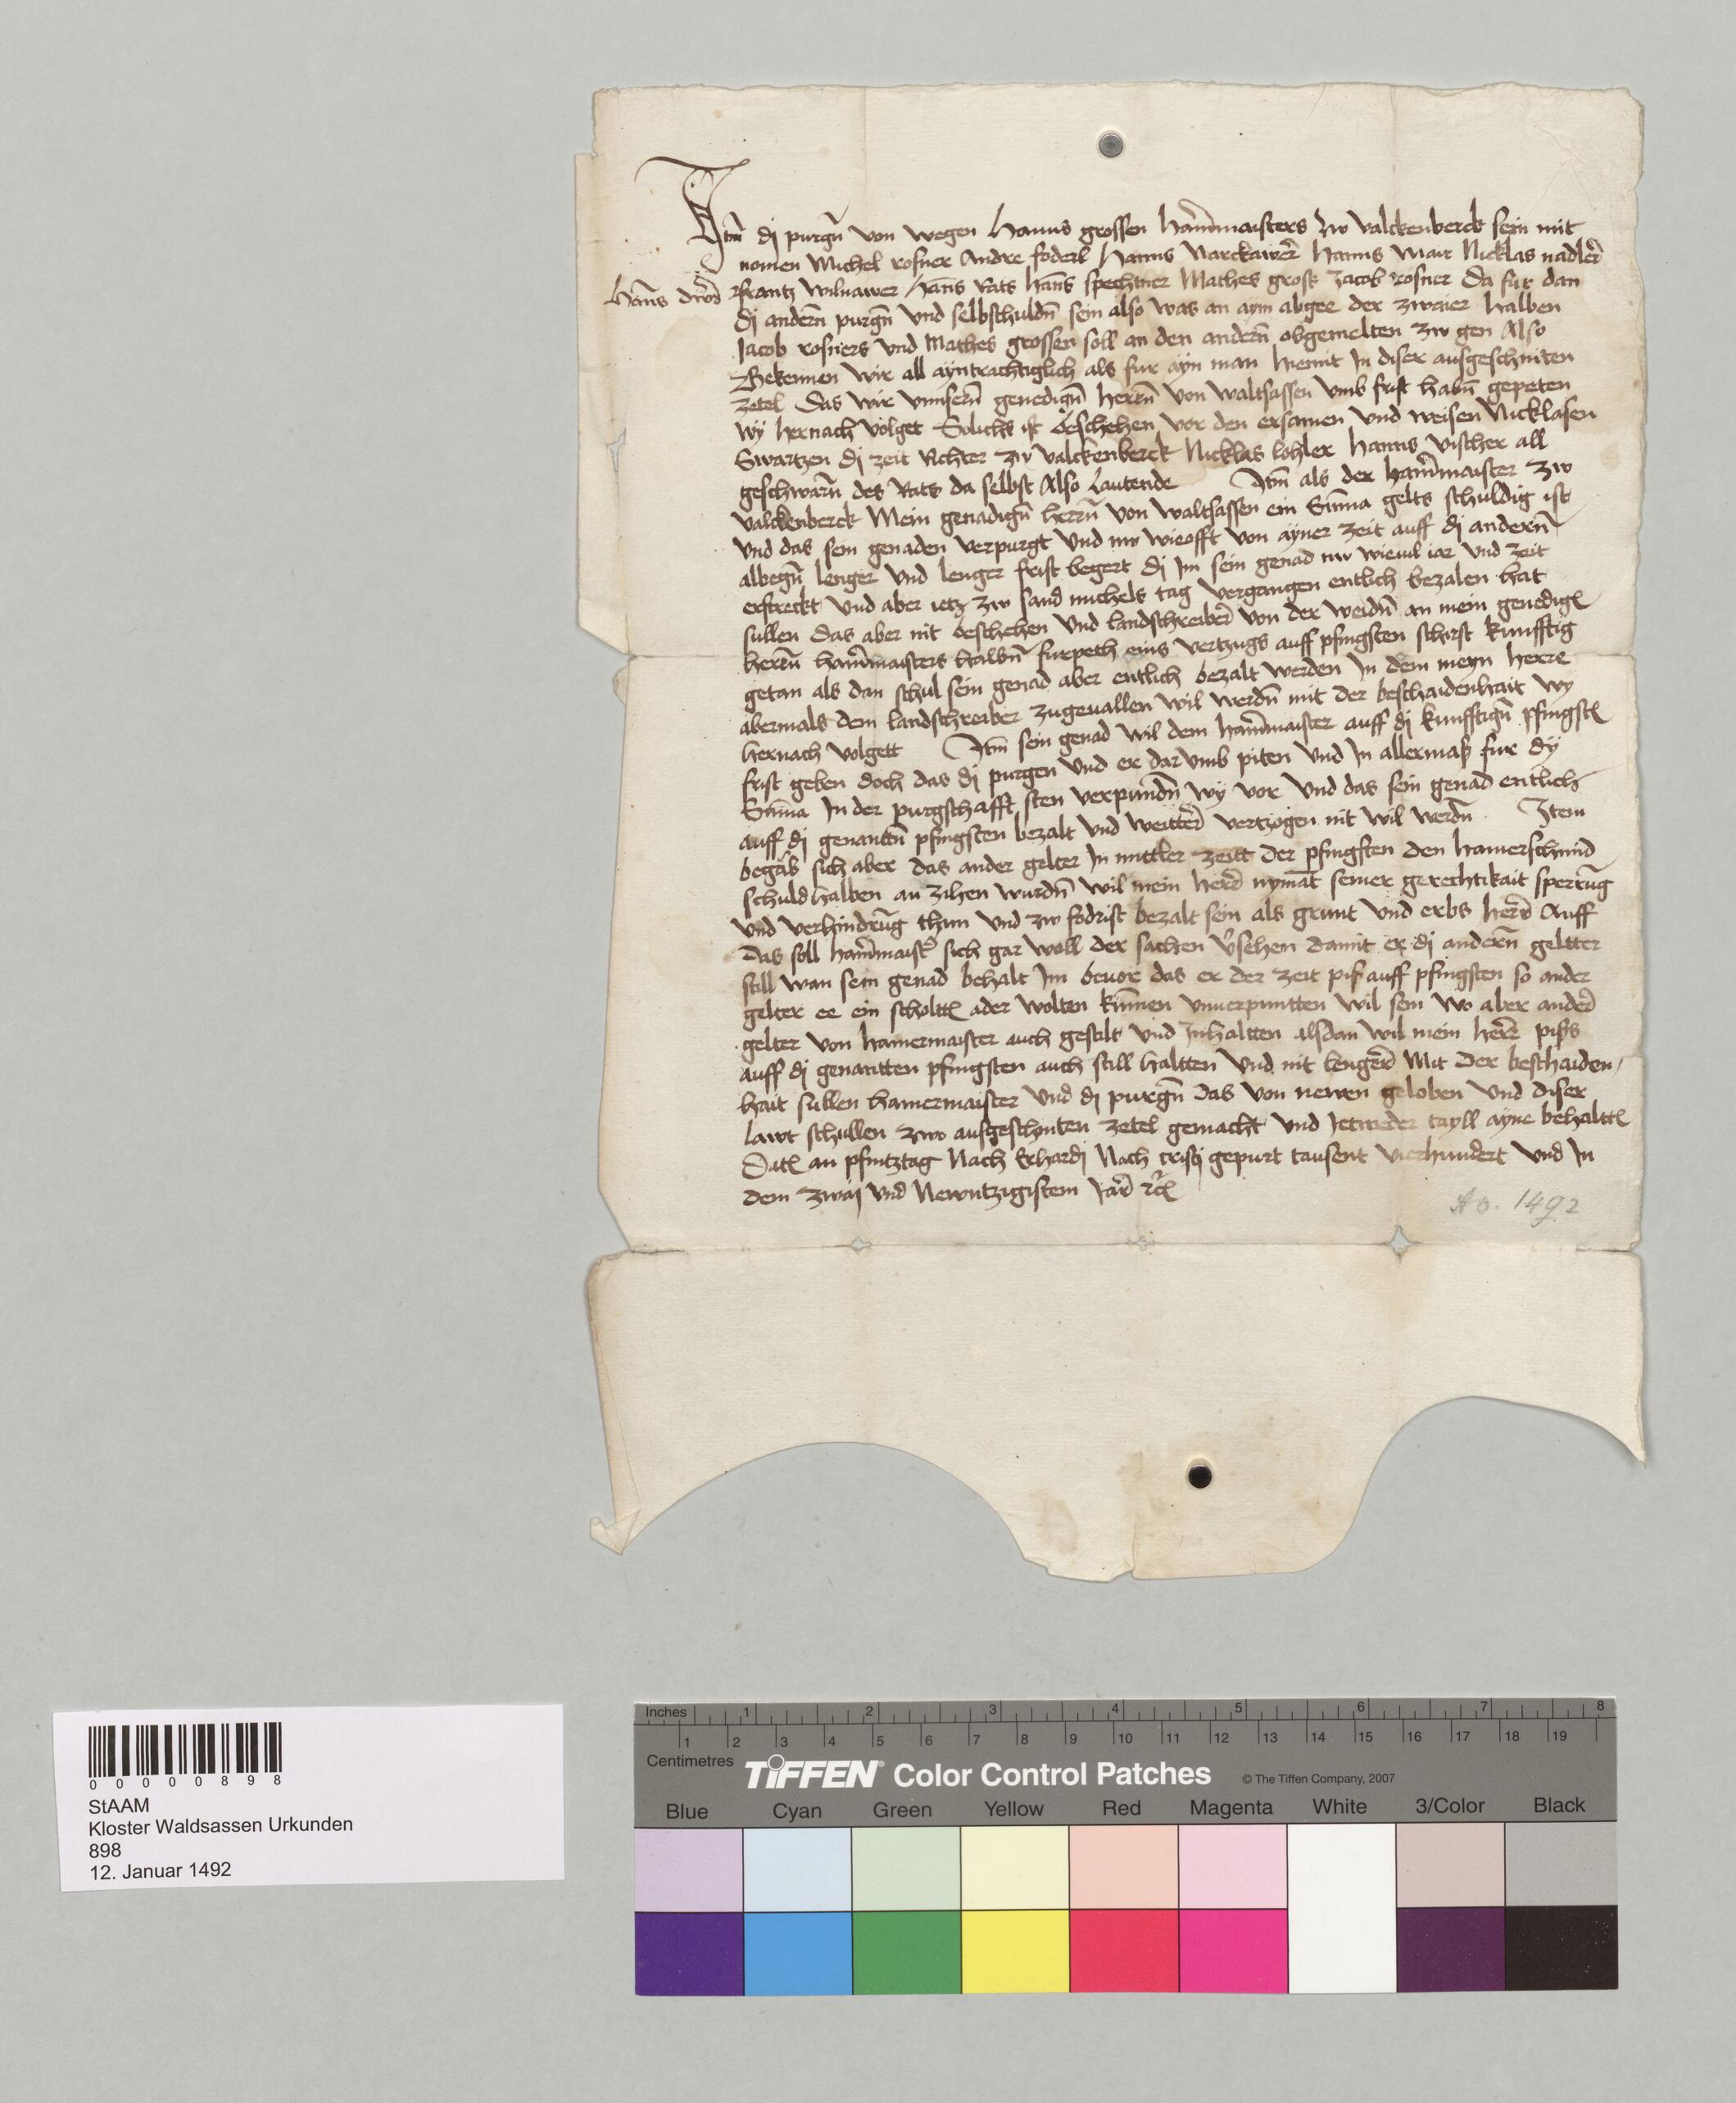 Itm dj purgn̄ von wegen Hanns grossen ham̄maisters zw valckenberck sein mit
nomen Michel rosner Andre foderl Hanns Marckawer̄ Hanns Mair Nicklas nadler̄
Han̄s
frantz wilnawer Han̄s Rats Han̄s spechtner Mathes gross Jacob rosner Da fur dan
dj andern̄ purgn̄ vnd selbschuldn̄ sein also was an aym abgee der zwaier halben
Jacob rosners vnd Mathes grossen soll an den andern̄ obgemelten zw gen Also
Bekennen wir all ayntrachtiglich als fur ayn man hiemit In diser ausgeschniten
zetel Das wir vnnsern̄ genedign̄ herrn̄ von waltsassen vmb frist habn̄ gepeten
wÿ hernach volget Solichs ist beschehen vor den ersamen vnd weisen Nicklasen
Swartzen dj zeit Richter zw valckenberck Nicklas lohler Hanns vischer all
geschwarn̄ des Rats da selbst Also Lautende Itm̄ als der ham̄maister zw
valckenberck Mein genadign̄ herrn̄ von waltsassen ein Sum̄a gelts schuldig ist
vnd das sein genaden verpurgt vnd nw wieofft von ayner zeit auff dj andern̄
albegn̄ lenger vnd lenger frist begert dj Im sein genad nw wieuil iar vnd zeit
erstreckt vnd aber ietz zw sand michels tag vergangen entlich bezalen hat
sullen Das aber nit beschehen vnd landschreiber̄ von der weidn̄ an mein genedigen
herrn̄ ham̄maisters halbn̄ furpeth eins vertzugs auff pfingsten schirst kunfftig
getan als dan schul sein genad aber entlich bezalt werden In dem meyn herre
abermals dem landschreiber zugeuallen wil werdn̄ mit der beschaidenhait wy
hernach volgett Itm̄ sein genad wil dem ham̄maister auff dj kunfftign̄ pfingsten
frist geben doch das dj purgen vnd er dar vmb piten vnd In allermass fur dÿ
Sum̄a In der purgschafft sten verpundn̄ wÿ vor vnd das sein genad entlich
auff dj genantn̄ pfingsten bezalt vnd weitter̄ vertzogen nit wil werdn̄ Item
begab sich aber das ander gelter In mittler zeitt der pfingsten den hamerschmid
schuld halben an zihen wurdn̄ wil mein herr̄ nymāt seiner gerechtikait sperrūg
vnd verhindrūg thun vnd zw fodrist bezalt sein als grunt vnd erbs herr̄ Auff
Das soll ham̄maister sich gar woll der sachen v̓sehen damit er dj andern̄ geltter
still wan sein genad behalt Im beuor das er der zeit pis auff pfingsten so ander
gelter ee ein scholten ader wolten kum̄en vnuerpuntten wil sein wo aber ander̄
gelter von hamermaister auch gestilt vnd Inhaltten alsdan wil mein herr̄ piss
auff dj genantten pfingsten auch still haltten vnd nit lenger̄ Mit Der beschaiden
hait sullen hamermaister vnd dj purgn̄ Das von newen geloben vnd diser
lawt schullen zwo ausgeschniten zetel gemacht vnd Jetweder tayll ayne behalten
Datum an pfintztag Nach Erhardj Nach cristj gepurt tausent vierhundert vnd In
dem zwaj vnd Newntzigistem Jar̄ etc
Ao. 1492
00000898
StAAM
Kloster Waldsassen Urkunden
898
12. Januar 1492
Inches 1 2 3 4 5 6 7 8
1 2 3 4 5 6 7 8 9 10 11 12 13 14 15 16 17 18 19
Centimetres
TIFFEN® Color Control Patches © The Tiffen Company, 2007
Blue Cyan Green Yellow Red Magenta White 3/Color Black